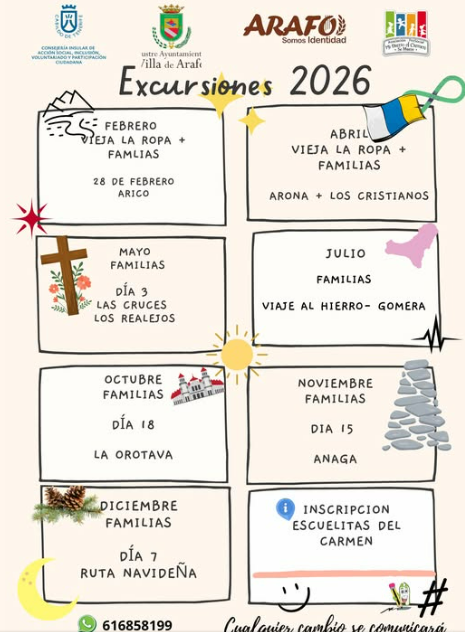 CONSEJERÍA INSULAR DE
ACCIÓN SOCIAL, INCLUSIÓN,
VOLUNTARIADO Y PARTICIPACIÓN
CIUDADANA
ustre Ayuntamient
Villa de Arafo
ARAFO
Somos Identidad
Excursiones 2026
FEBRERO
VIEJA LA ROPA +
FAMLIAS
28 DE FEBRERO
ARICO
ABRIL
VIEJA LA ROPA +
FAMILIAS
ARONA + LOS CRISTIANOS
MAYO
FAMILIAS
DÍA 3
LAS CRUCES
LOS REALEJOS
JULIO
FAMILIAS
VIAJE AL HIERRO- GOMERA
OCTUBRE
FAMILIAS
DÍA 18
LA OROTAVA
NOVIEMBRE
FAMILIAS
DIA 15
ANAGA
DICIEMBRE
FAMILIAS
DÍA 7
RUTA NAVIDEÑA
INSCRIPCION
ESCUELITAS DEL
CARMEN
#
616858199
Cualquier cambio se comunicará